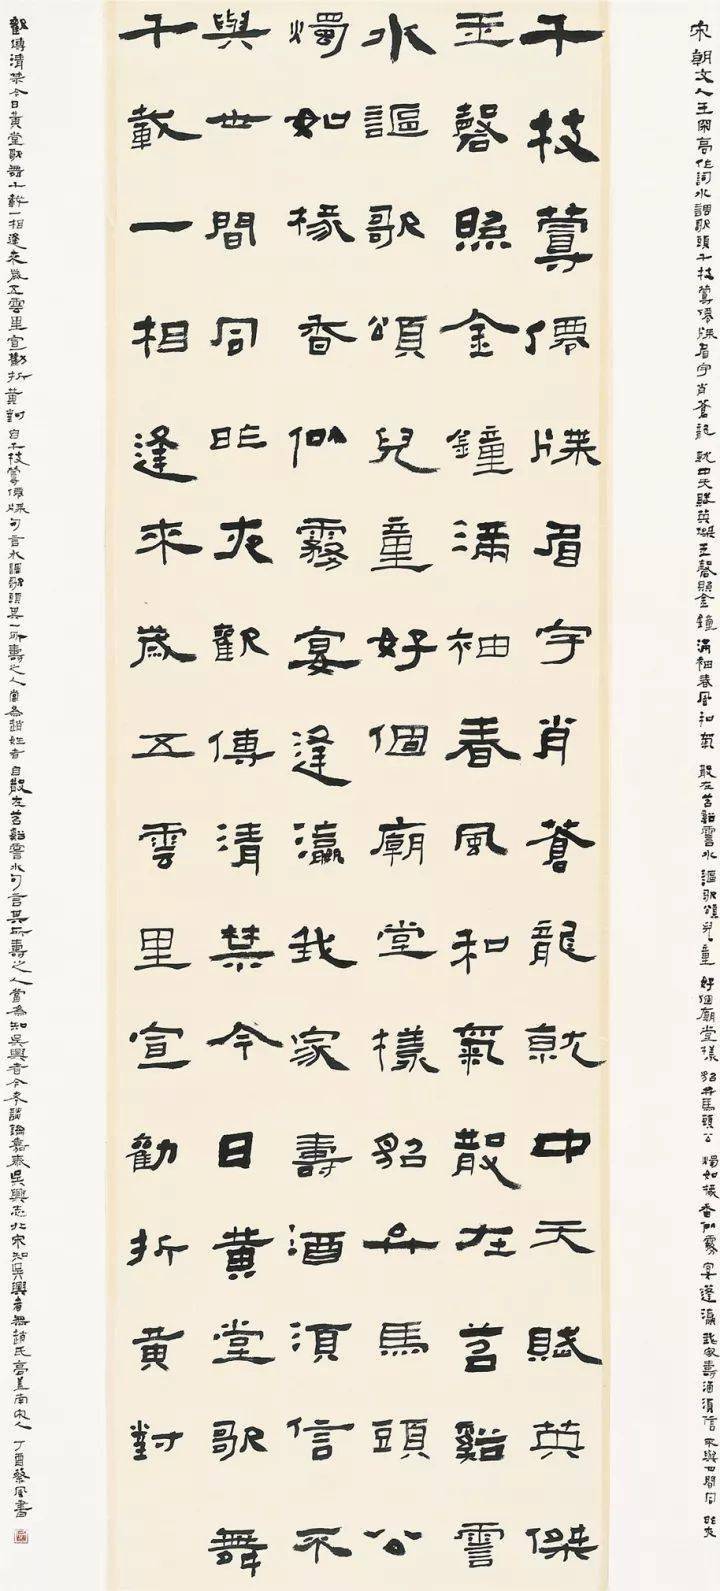 宋朝文人王高作詞水調歌頭千枝蕚僊牒眉宇肖蒼龍 就中天賦英傑玉磬照金鐘 滿袖春風和氣 散在苕谿霅水 謳歌頌兒童 好個廟堂樣 貂弁馬頭公 燭如椽香似霧 宴蓬瀛我家壽酒須信不與世間同 昨夜
千枝蕚僊牒眉宇肖蒼龍就中天賦英傑
玉磬照金鐘滿袖春風和氣散在苕谿霅
水謳歌頌兒童好個廟堂樣貂弁馬頭公
燭如椽香似霧宴逢瀛我家壽酒須信不
與世間同昨夜觀傳清禁今日黃堂歌舞
千載一相逢來歲五雲里宣勸折黃對
觀傳清禁今日黃堂歌舞千載一相逢來歲五雲里宣勸折黃對 自千枝蕚僊牒句言水調歌頭其一所壽之人當為趙姓者 自散在苕谿霅水句言其所壽之人當為知吳興者今考談鑰嘉泰吳興志北宋知吳興者無趙氏高蓋南宋人 丁酉蔡風書